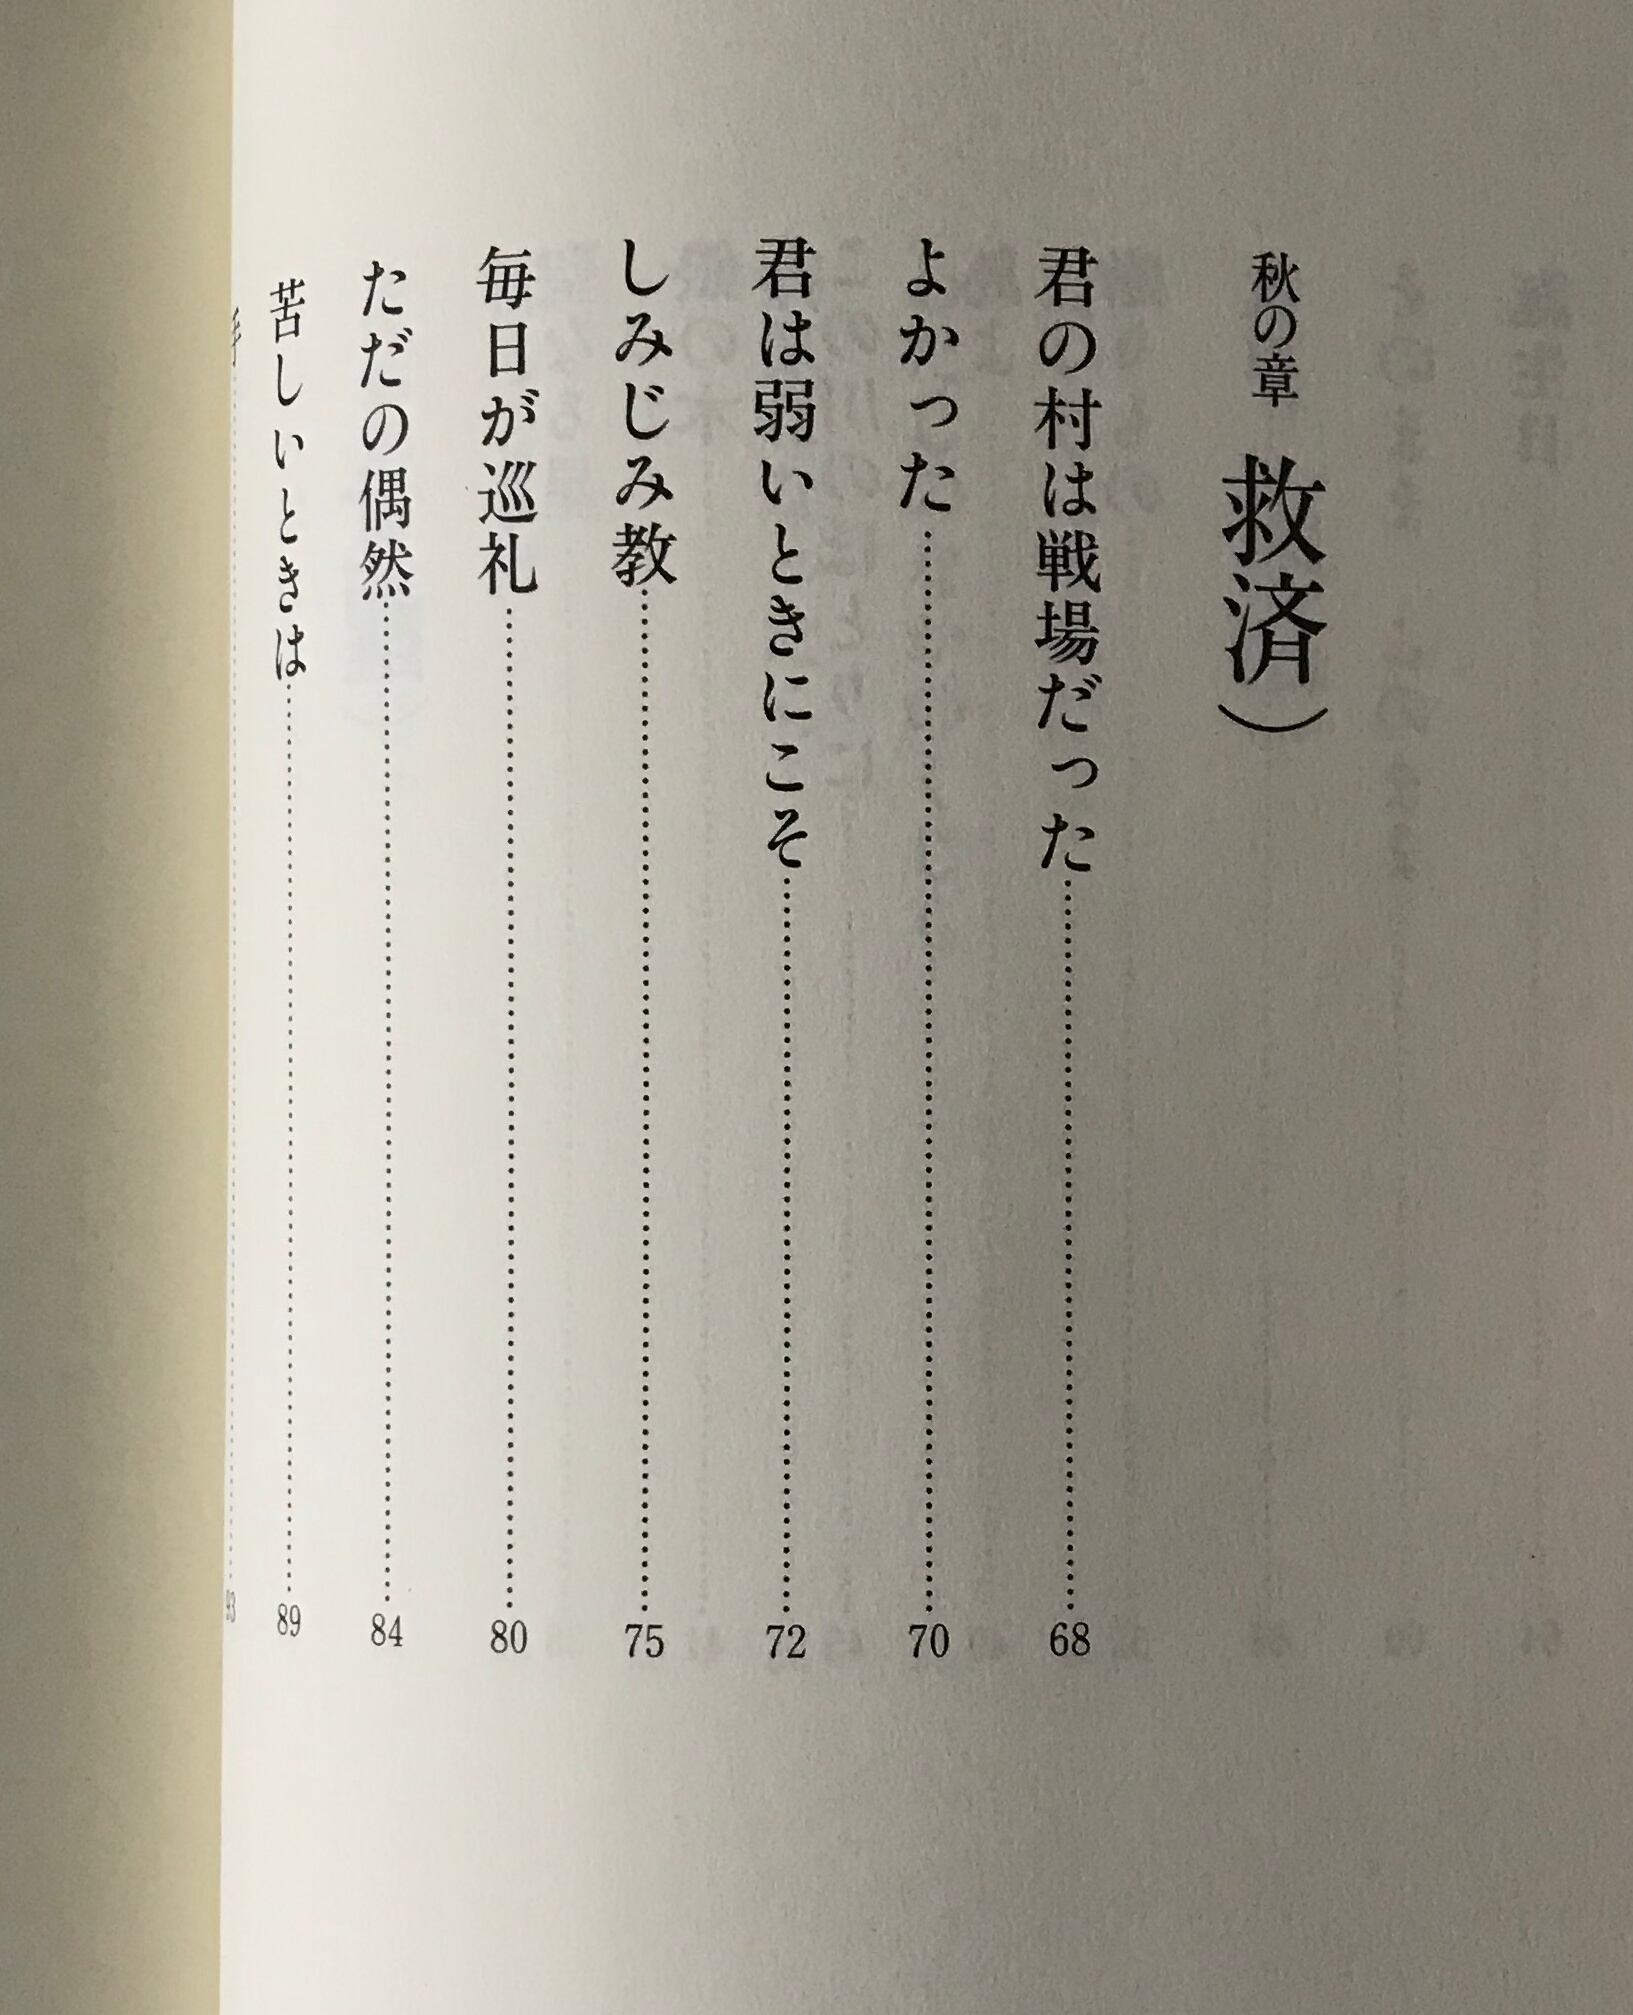 秋の章 救済）
君の村は戦場だった……68
よかった……70
君は弱いときにこそ……72
しみじみ教……75
毎日が巡礼……80
ただの偶然……84
苦しいときは……89
手……93